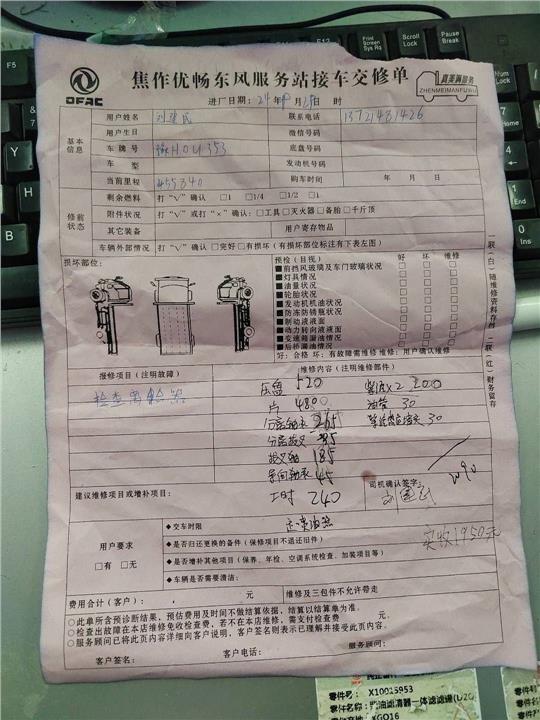 焦作优畅东风服务站接车交修单
DFAC
真美满服务
ZHENMEIMANFUWU
进厂日期：24年 月 日 时
基本信息
用户姓名 刘建民 联系电话 13721431426
用户生日 微信号码
车牌号 豫H0U353 底盘号码
车型 发动机号码
当前里程 455340 购车时间 年 月 日
修前状态
剩余燃料 打“√”确认 □1 □1/4 □1/2 □1
附件状况 打“√”或打“×”确认：□工具□灭火器□备胎□千斤顶
其它装备 用户寄存物品
车辆外部情况 打“√”确认 □完好□有损坏（有损坏部位标注有下表左图）
损坏部位：
预检（目视） 好 坏 维修
■前挡风玻璃及车门玻璃状况 □ □ □
■灯具情况 □ □ □
■油量状况 □ □ □
■轮胎状况 □ □ □
■发动机机油状况 □ □ □
■防冻防锈瓶状况 □ □ □
■制动液液面 □ □ □
■动力转向液液面 □ □ □
■变速箱漏油情况 □ □ □
■后桥漏油情况 □ □ □
好：合格 坏：有故障需维修 维修：用户确认维修
一联（白）随维修资料存档 二联（红）财务留存
报修项目（注明故障） 维修内容（注明维修部件）
检查离合器
压盘 520
片 480
265
185
45
工时 240
油管 30
30
2090
建议维修项目或增补项目：
司机确认签字：
刘建民
实收1950元
用户要求
□有 □无
◆交车时限
◆是否归还更换的备件（保修项目不退还旧件）
◆是否增补其他项目（保养、年检、空调系统检查、加装项目等）
◆车辆是否需要清洁：
费用合计（客户）： 元 维修及三包件不允许带走
○此单所含预诊断结果，预估费用及时间不做结算依据，结算以结算单为准。
○检查出故障在本店维修免收检查费，若不在本店维修，需支付检查费 元。
○服务顾问已将此页内容详细向客户说明，客户签名则表示已理解并接受此页内容。
客户签名： 客户电话： 服务顾问：
零件号： X10015953
零件名称：
XGQ16
F5
F12
Print Screen
Sys Rq
Scroll Lock
Pause Break